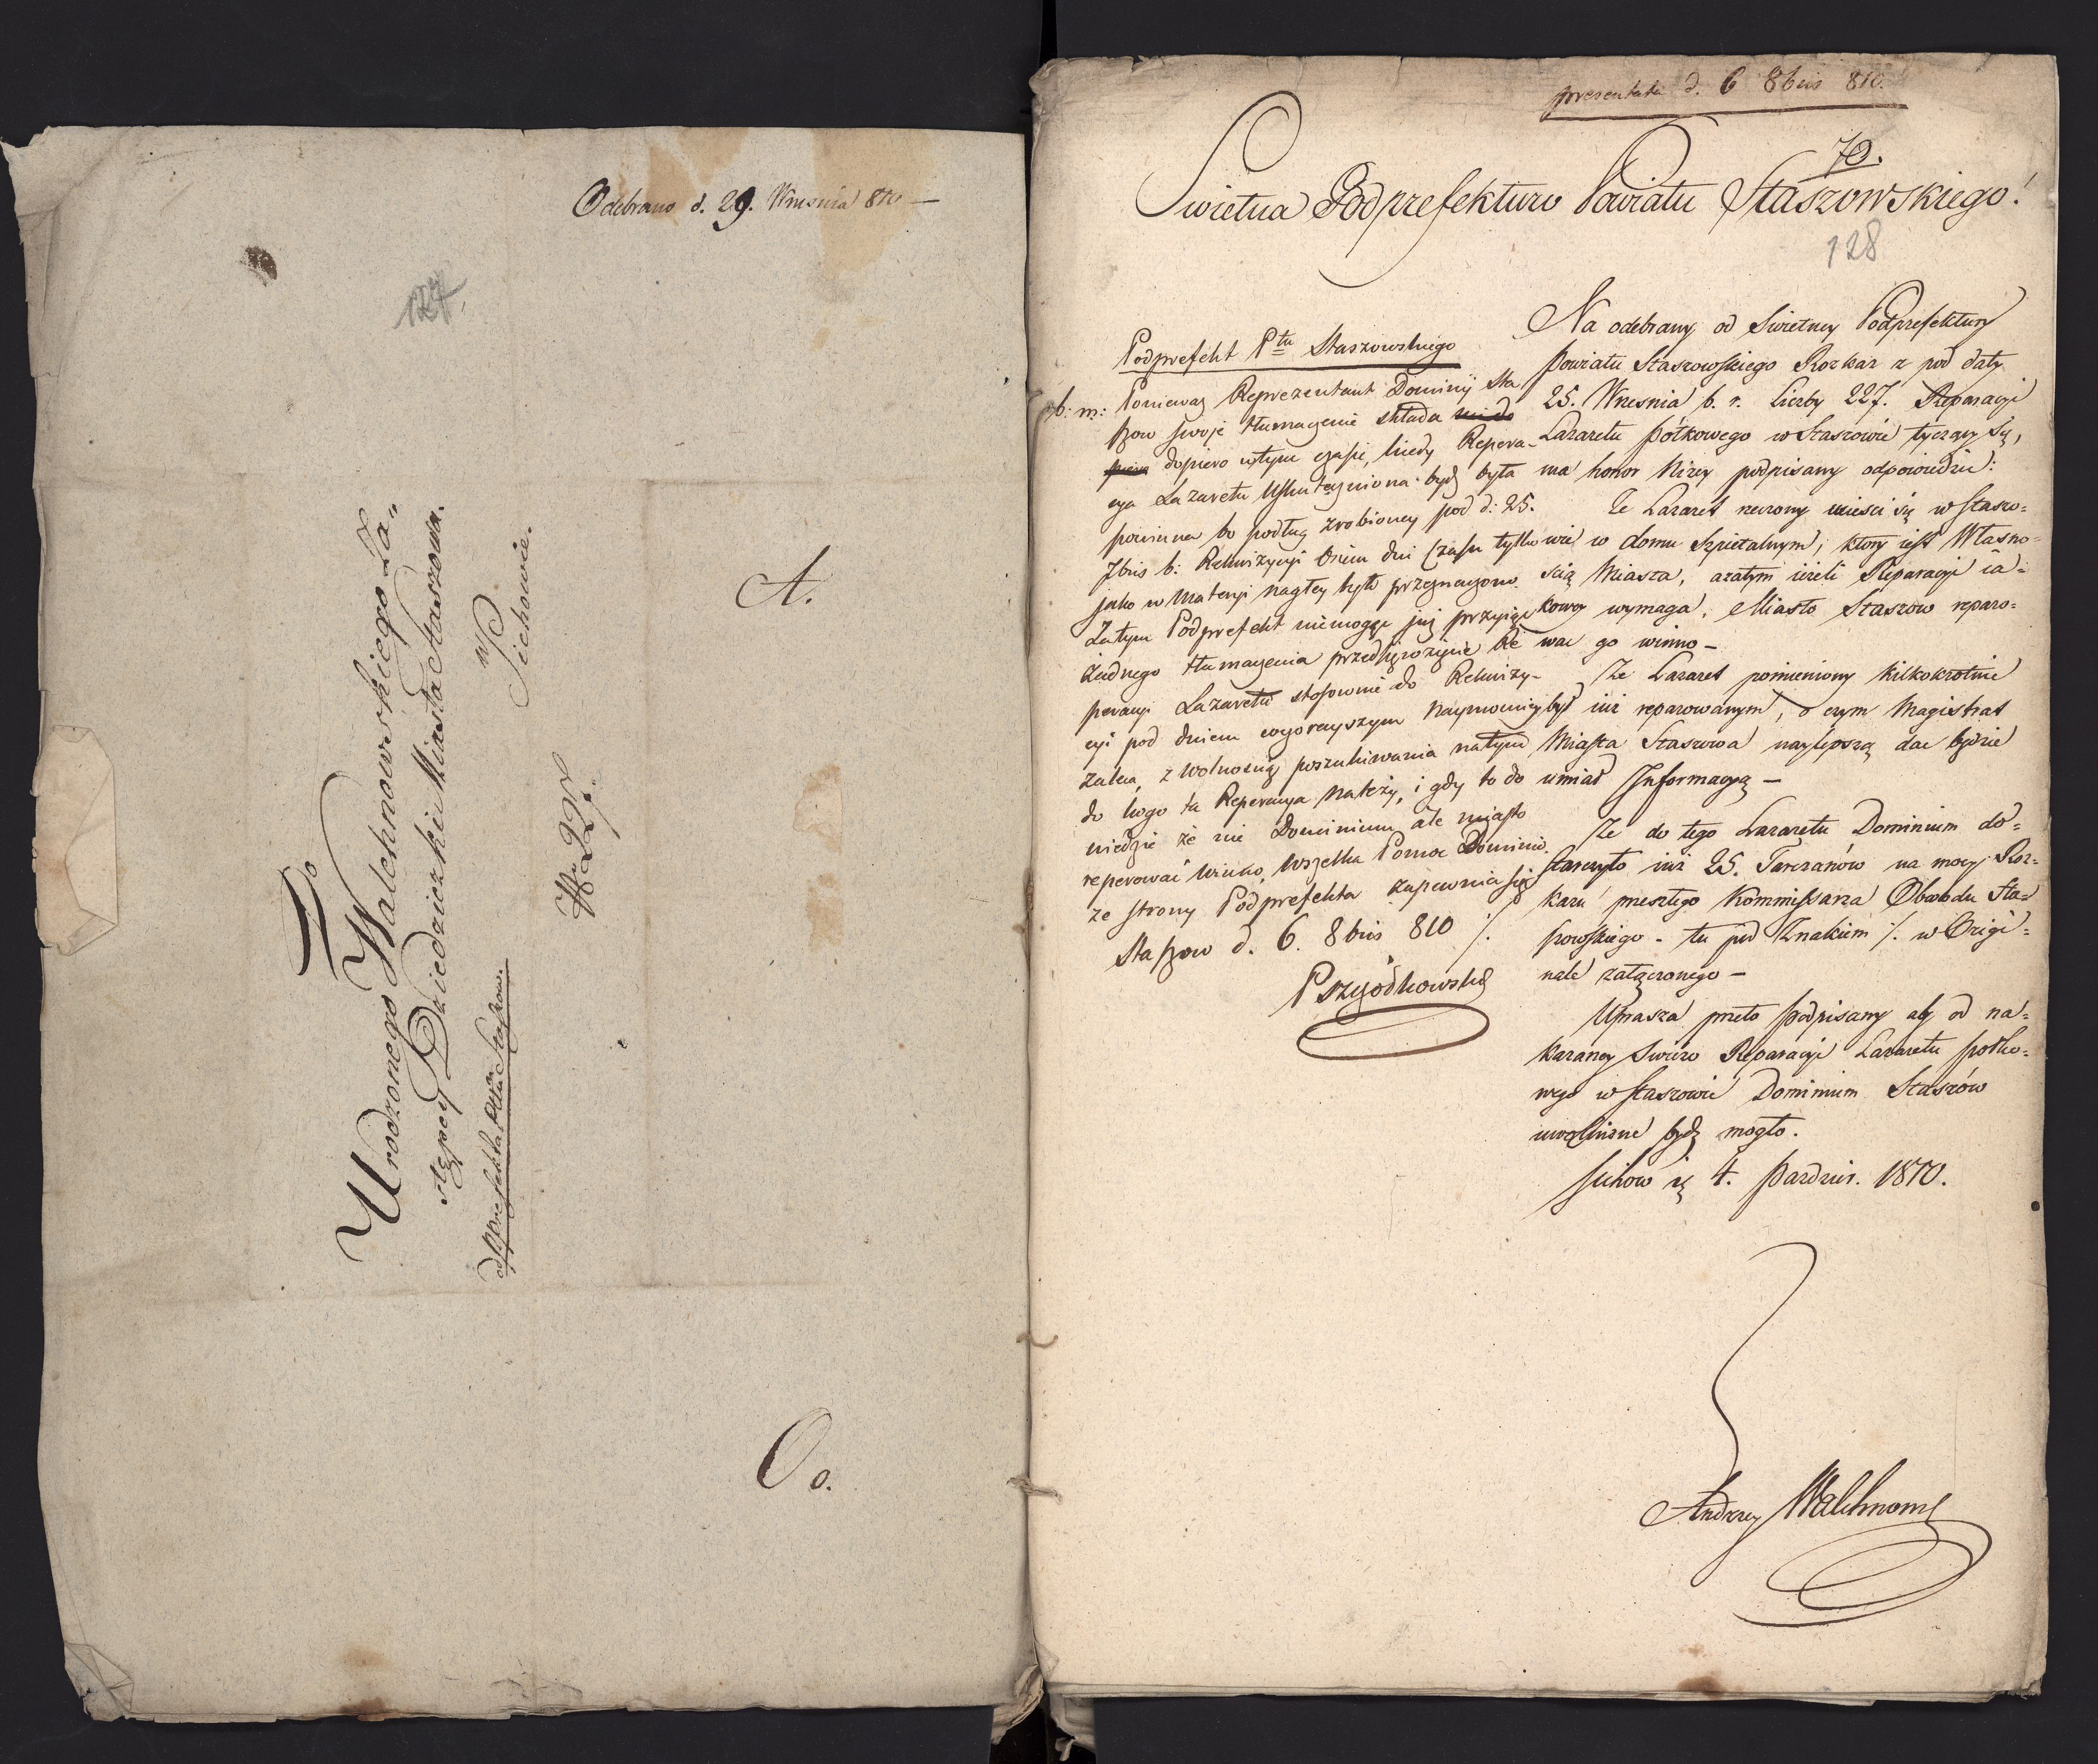 Odebrano d. 29. Wrzesnia 810 —
127.
Do
Urodzonego Walchnowskiego Za„
stępcy Dziedziczki Miasta Staszowa.
w
Sichowie.
od Podprefekta Pttu Staszow:
Nr 227.
A.
Oo.
presentata d. 6 8bris 810.
70.
Swietna Podprefekturo Powiatu Staszowskiego!
128
Podprefekt Ptu Staszowskiego
Ponieważ Reprezentant Dominij Sta
szow swoje tłumaczenie składa
dopiero wtym czasie, kiedy Repera-
cya Lazaretu uskutecznioną bydź była
powinna bo podług zrobioney pod d: 25.
7bris b: Rekwizycyi Osiem dni Czasu tylko
jako w Materyi nagłey było przeznaczone.
Zatym Podprefekt niemogąc już przyiąć
żadnego tłumaczenia przedsięwzięcie Re
peracyi Lazaretu stosownie do Rekwizy-
cyi pod dniem wyżomyszym Naymocniey
zaleca, z wolnością poszukiwania natym
do kogo ta Reperacya należy, i gdy to do
wiedzie że nie Dominium ale miasto
reperować winno, wszelka Pomoc Dominio
ze strony Podprefekta zapewnia się
Staszow d. 6. 8bris 810 ./.
Przyiodkowski
Na odebrany od Swietney Podprefektury
Powiatu Staszowskiego Rozkaz z pod daty
25. Wrzesnia b. r. Liczby 227. Reparacyi
Lazaretu półkowego w Staszowie tyczący się,
ma honor Niżey podpisany odpowiedzieć:
Ze Lazaret rzeczony mieści się w Staszo=
wie w domu Szpitalnym, ktory iest Własno=
scią Miasta, azatym ieżeli Reparacyi ia=
kowey wymaga, Miasto Staszow reparo=
wac go winno —
Ze Lazaret pomieniony kilkokrotnie
był iuż reparowanym, o czym Magistrat
Miasta Staszowa naylepszą dac będzie
umiał Informacyą —
Ze do tego Lazaretu Dominium do=
starczyło iuż 25. Tarczanów na mocy Roz=
kazu przeszłego Kommissarza Obwodu Sta=
szowskiego - tu pod Znakiem ./. w Origi=
nale załączonego —
Uprasza przeto podpisany aby od na=
kazaney świeżo Reparacyi Lazaretu połko=
wego w Staszowie Dominium Staszów
uwolnione bydź mogło.
Sichow dą 4. Pazdzier. 1810.
Andrzey Walchnowski